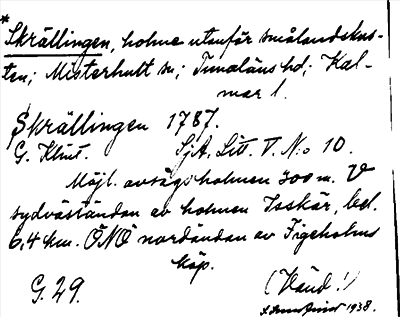 *
Skrällingen, holme utanför smålandskus-
ten; Misterhult sn; Tunaläns hd; Kal-
mar l.
Skrällingen 1787.
G. Klint. SjA. Litt. V. N:o 10.
Möjl. avsågs holmen 300 m. V
sydväständan av holmen Taskär, bel.
6,4 km. ÖNÖ nordändan av Figeholms
köp.
G. 29. (Vänd!)
1938.